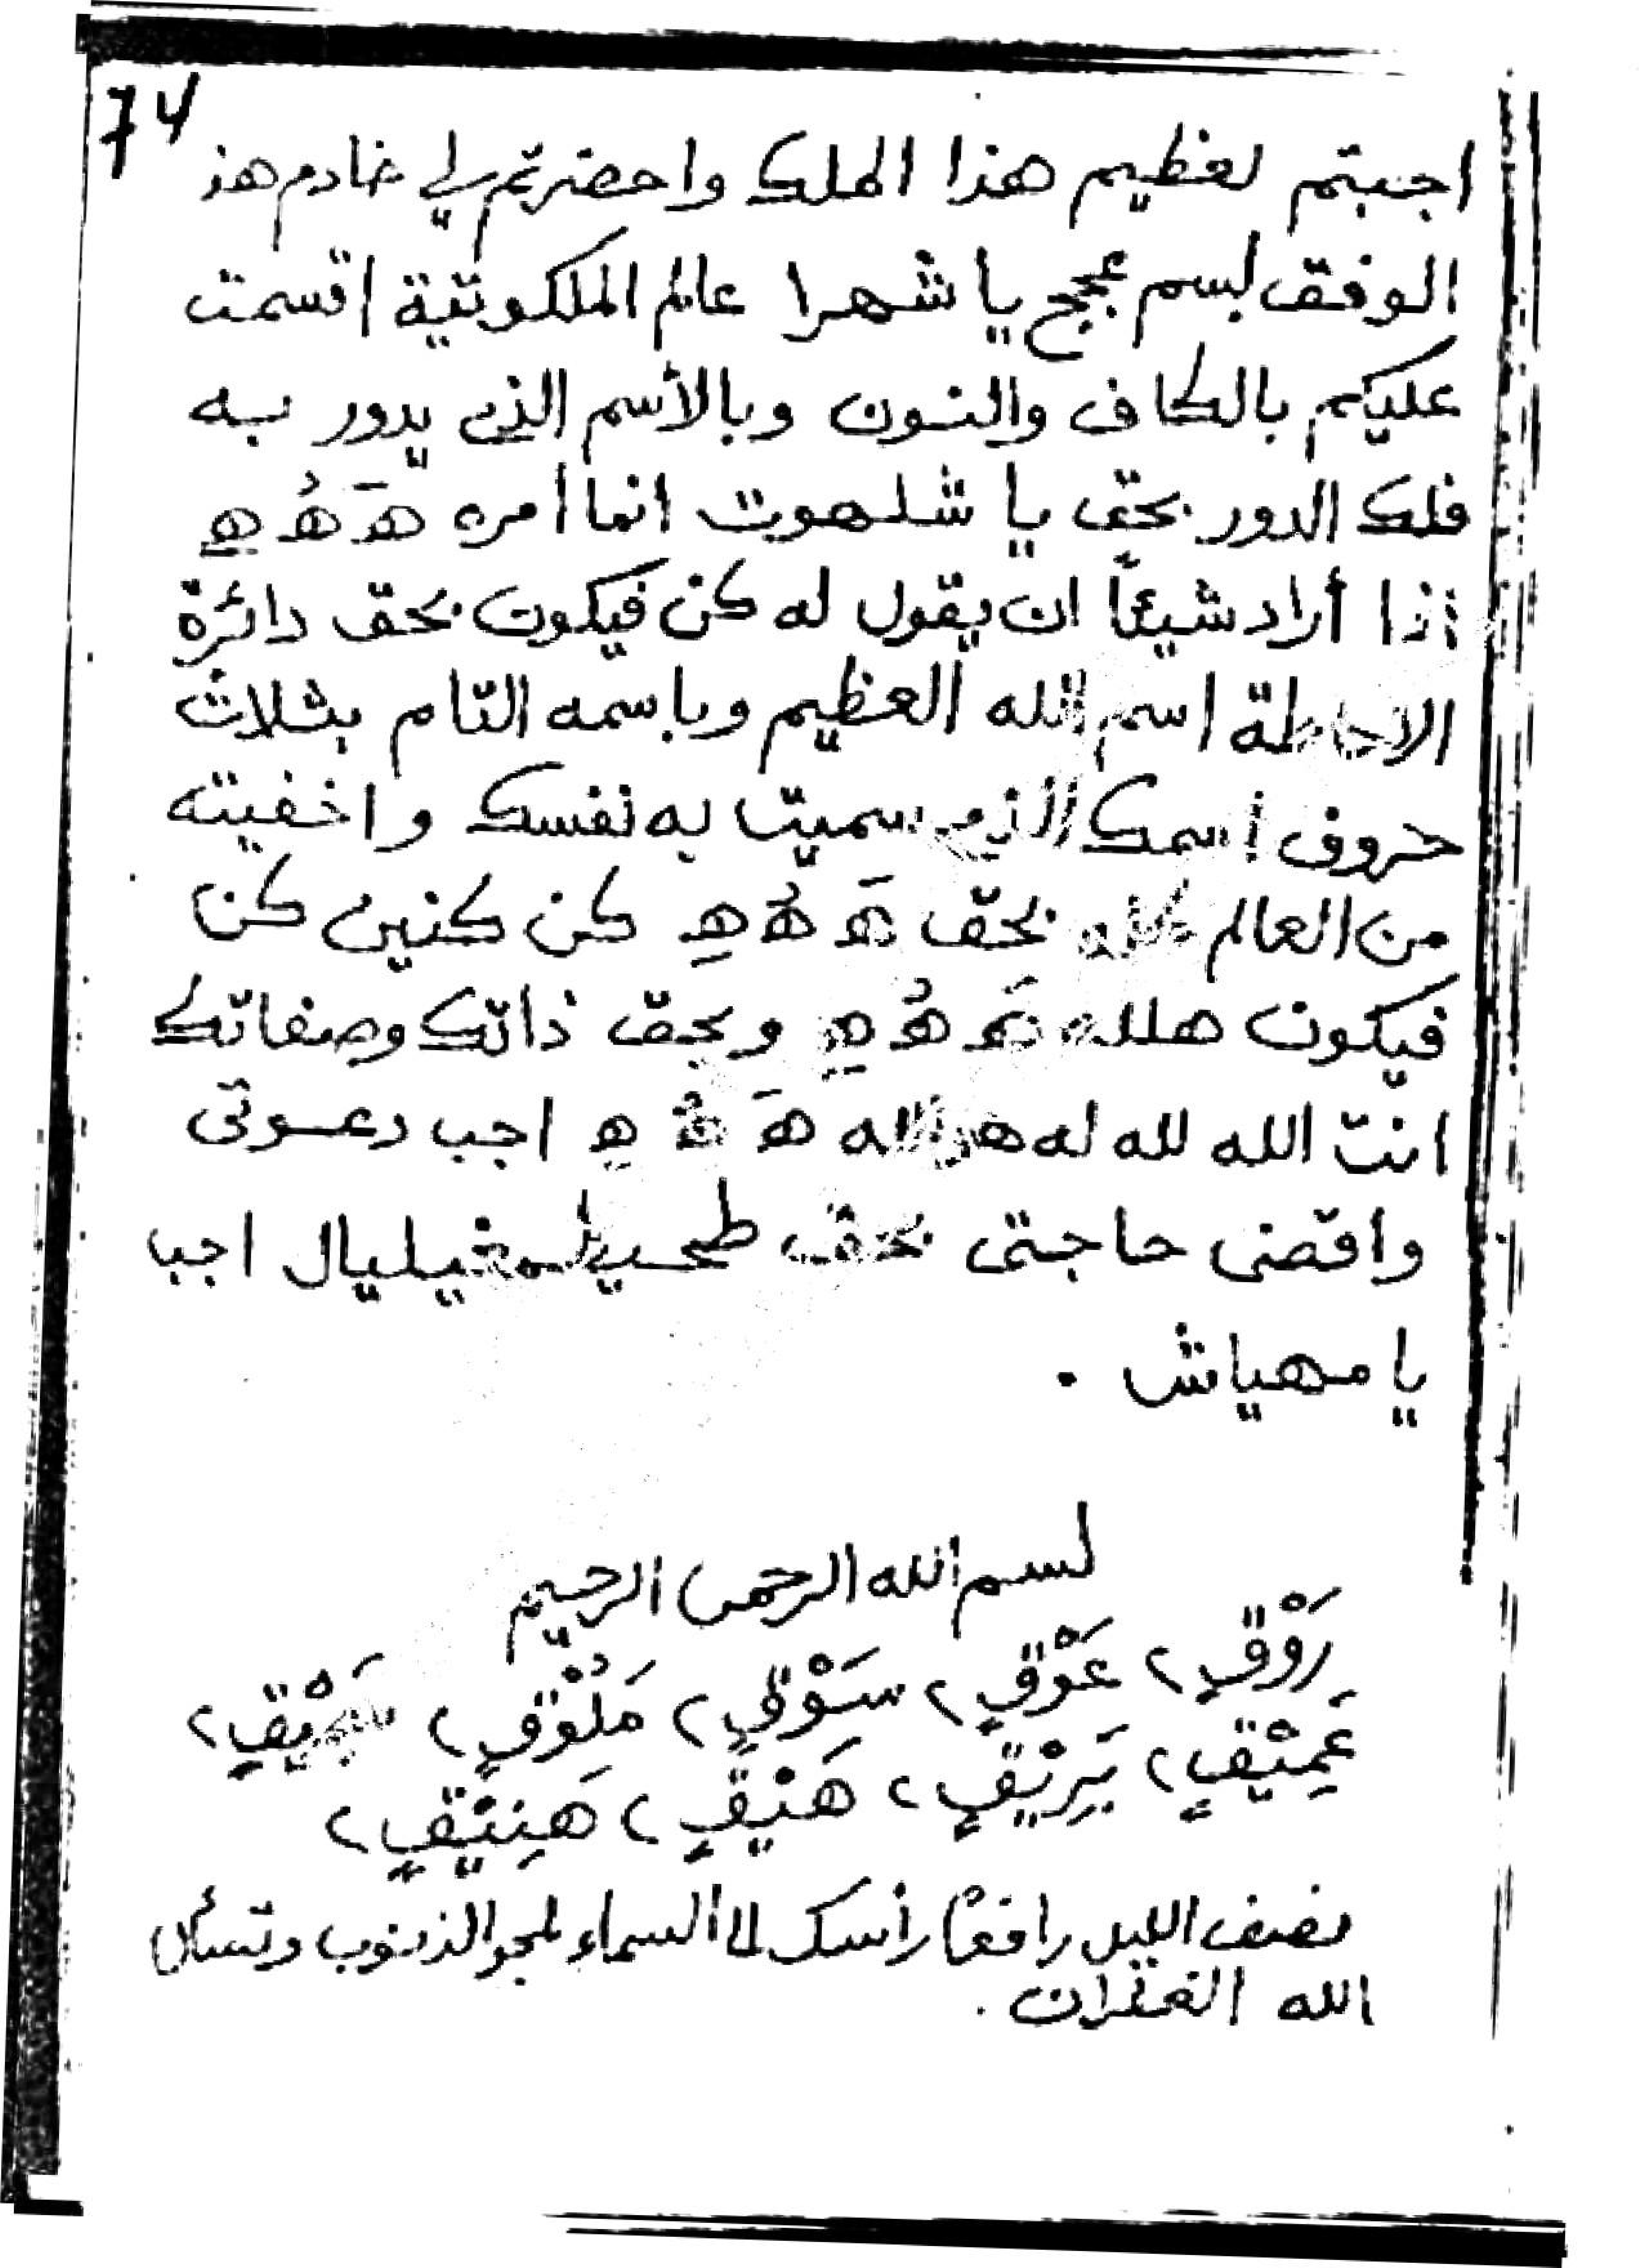 74
اجبتم لعظيم هذا الملك واحضرتم لي خادم هذ
الوفق بسم عججج يا شهرا عالم الملكوتية اقسمت
عليكم بالكاف والنون وبالأسم الذي يدور به
فلك الدور بحق يا شلهوت انما امره هَ هُ هِ
إذا أراد شيئاً ان يقول له كن فيكون بحق دائرة
الاحاطة اسم الله العظيم وباسمه التام بثلاث
حروف إسمك الذي سميت به نفسك واخفيته
من العالم بحق هَ هُ هِ كن كنين كن
فيكون هلله هَ هُ هِ وبحق ذاتك وصفاتك
انت الله لله له هَ هُ هِ اجب دعوتى
واقضى حاجتى بحق اجب
يا مهياش .
بسم الله الرحمن الرحيم
رَوْقٍ ٢ عَوْقٍ ٢ سَوْقٍ ٢ مَلُوْقٍ ٢ ٢
عَمِيْقٍ ٢ يَرِيْقٍ ٢ هَيْقٍ ٢ هَنِيْقٍ ٢
نصف الليل رافعًا رأسك لا السماء لمحو الذنوب وتسأل
الله الغفران .